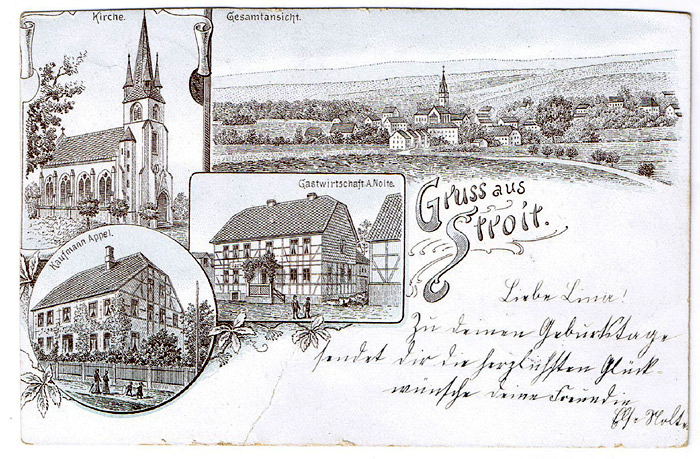 Kirche.
Gesamtansicht.
Gastwirtschaft A. Nolte.
Kaufmann Appel.
Gruss aus
Stroit.
Liebe Lina!
Zu deinem Geburtstage
sendet dir die herzlichsten Glück-
wünsche deine Freundin
Else Nolte